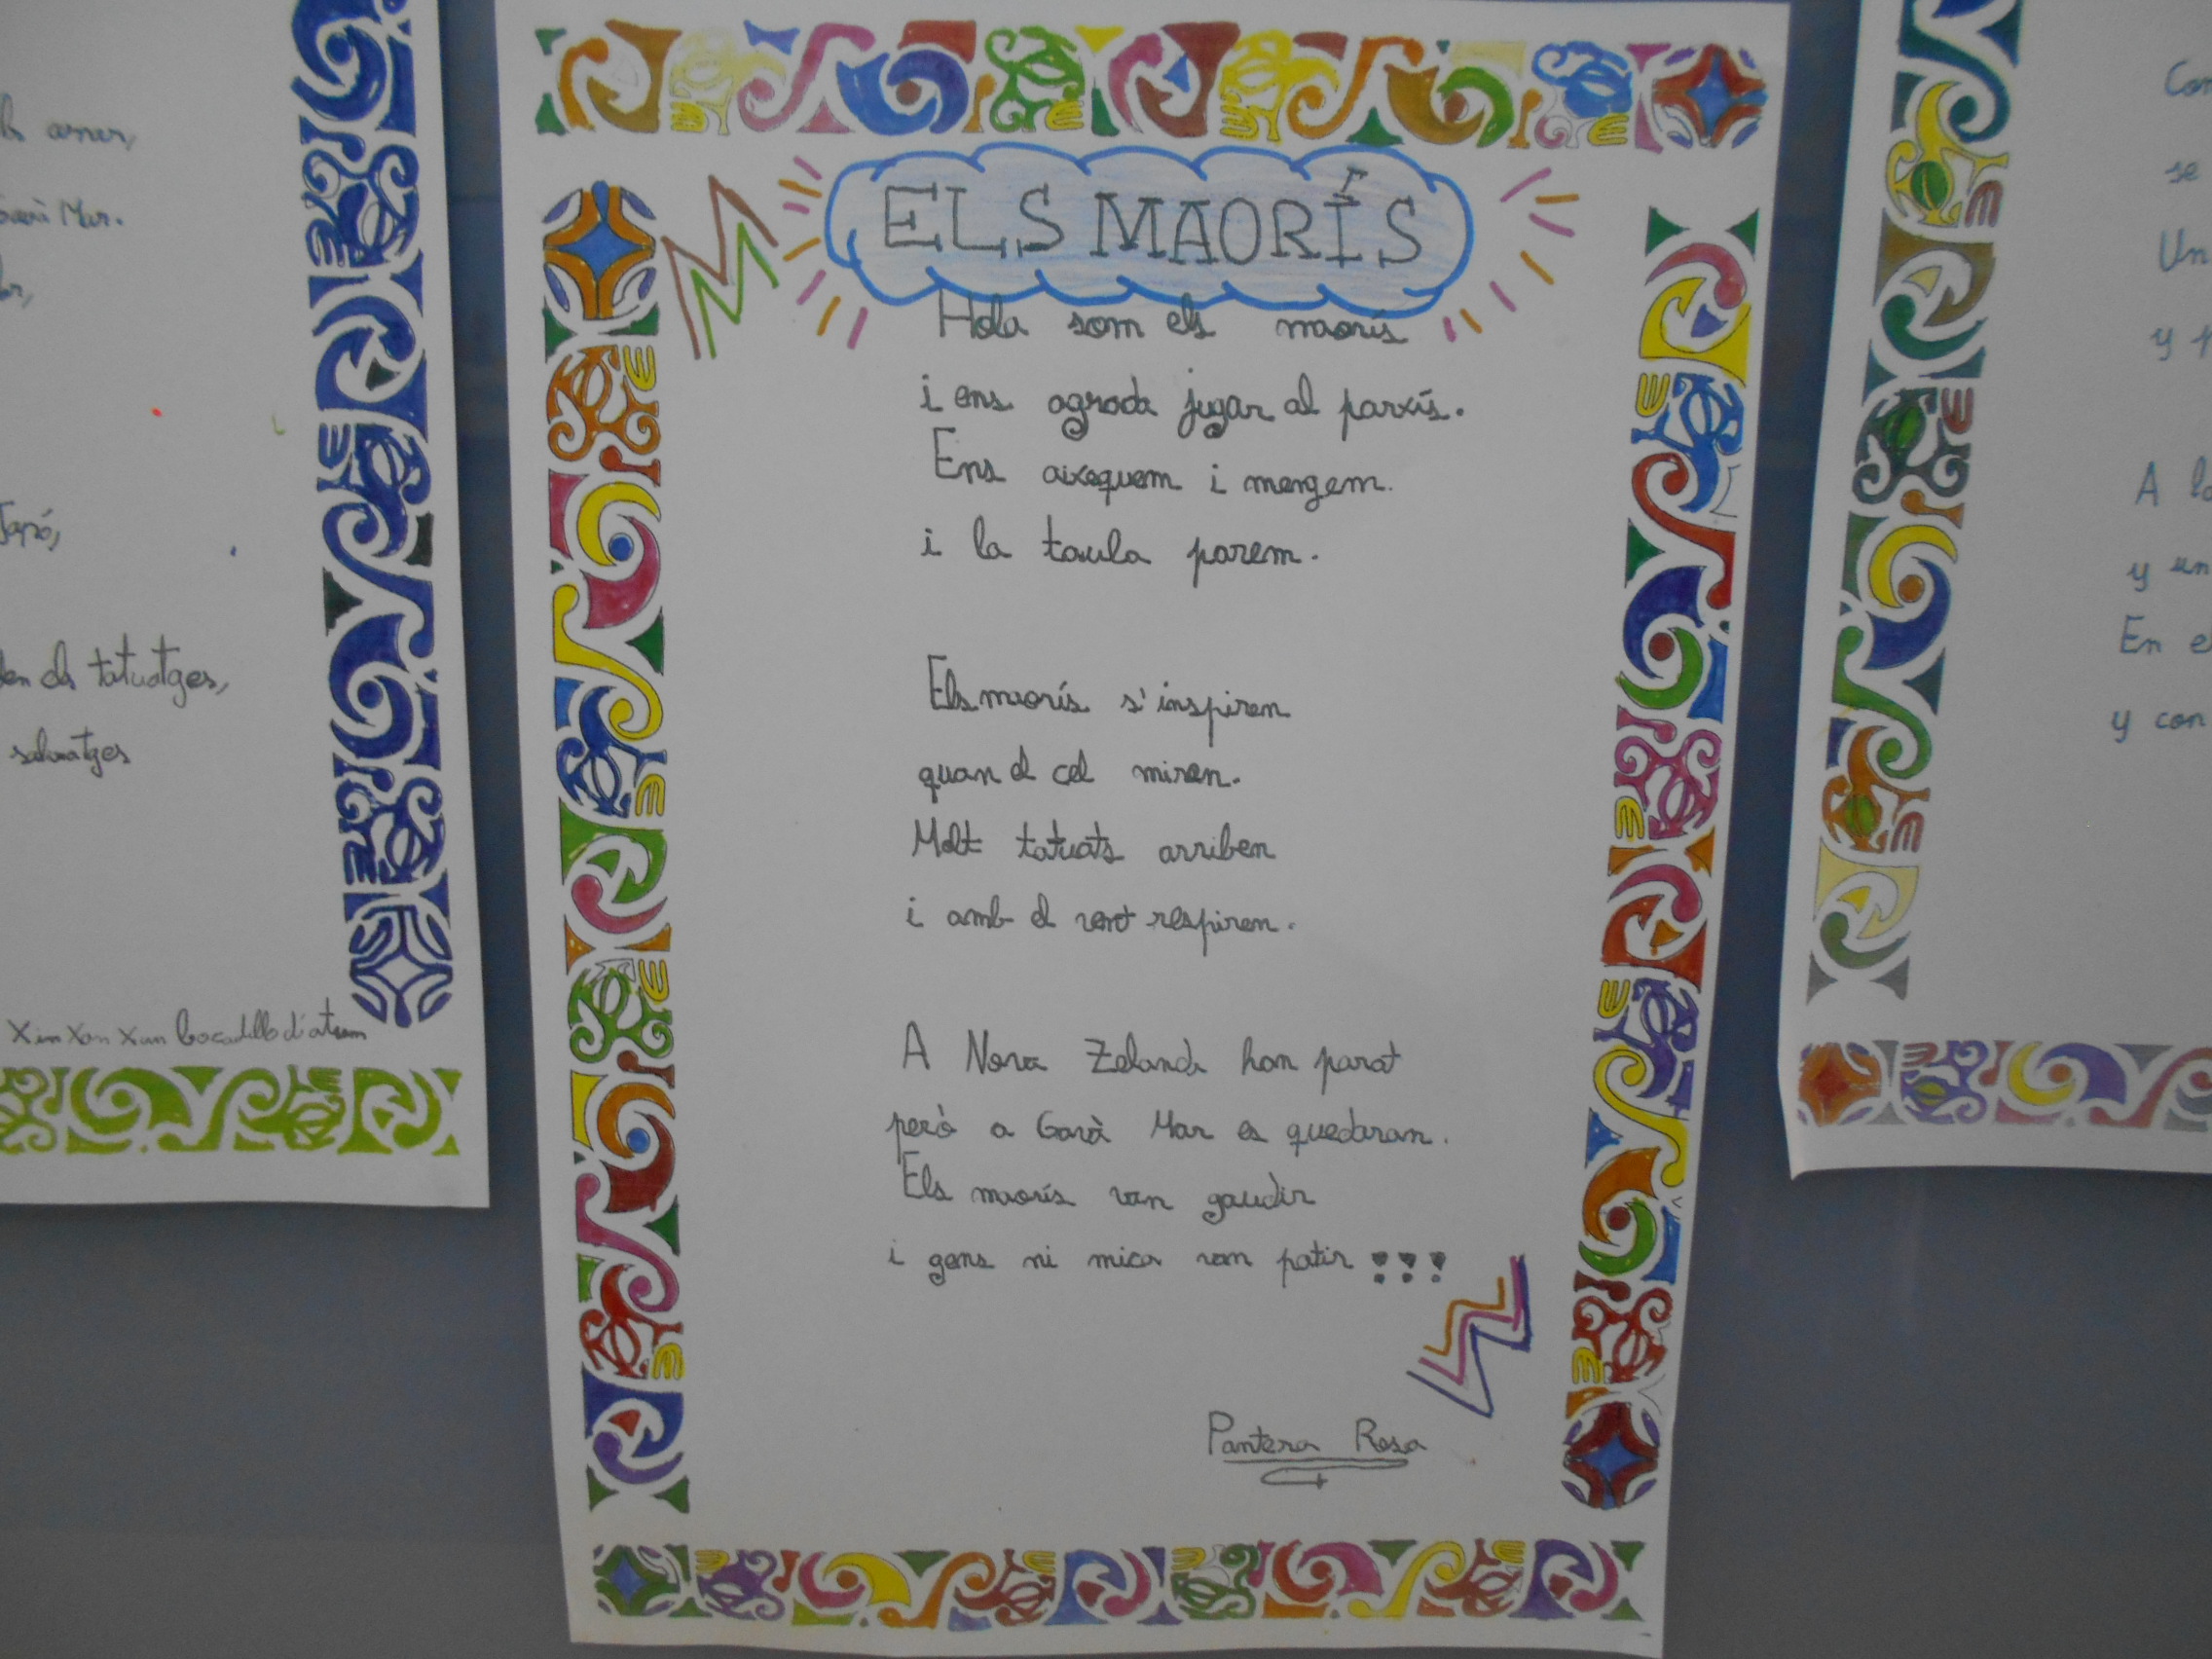 ls amar,
Mar.
Japó,
els tatuatges,
salvatges
Xin Xan Xun bocadillo d'atun
ELS MAORÍS
Hola som els maorís
i ens agrada jugar al parxís.
Ens aixequem i mengem.
i la taula parem.
Els maorís s'inspiren
quan el cel miren.
Molt tatuats arriben
i amb el vent respiren.
A Nova Zelanda han parat
però a Gavà Mar es quedaran.
Els maorís van gaudir
i gens ni mica van patir !!!
Pantera Rosa
Con
se
Un
y p
A la
y un
En e
y con